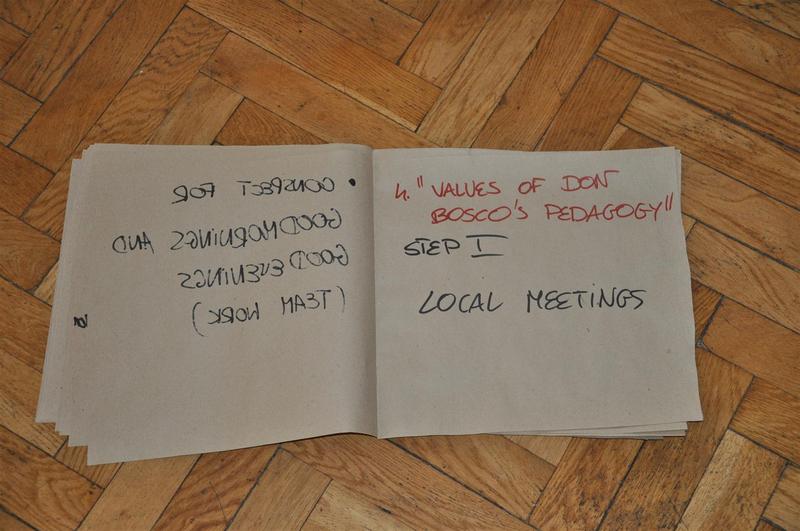 • CONSPECT FOR
GOODMORNINGS AND
GOOD EVENINGS
(TEAM WORK)
4. "VALUES OF DON
BOSCO'S PEDAGOGY"
STEP I
LOCAL MEETINGS